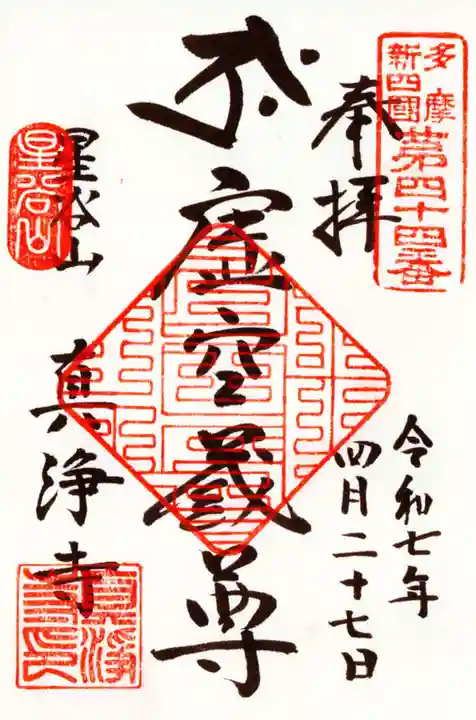 多摩
新四國
第四十四番
奉拝
令和七年
四月二十七日
虚空蔵尊
星谷山
星谷山
真浄寺